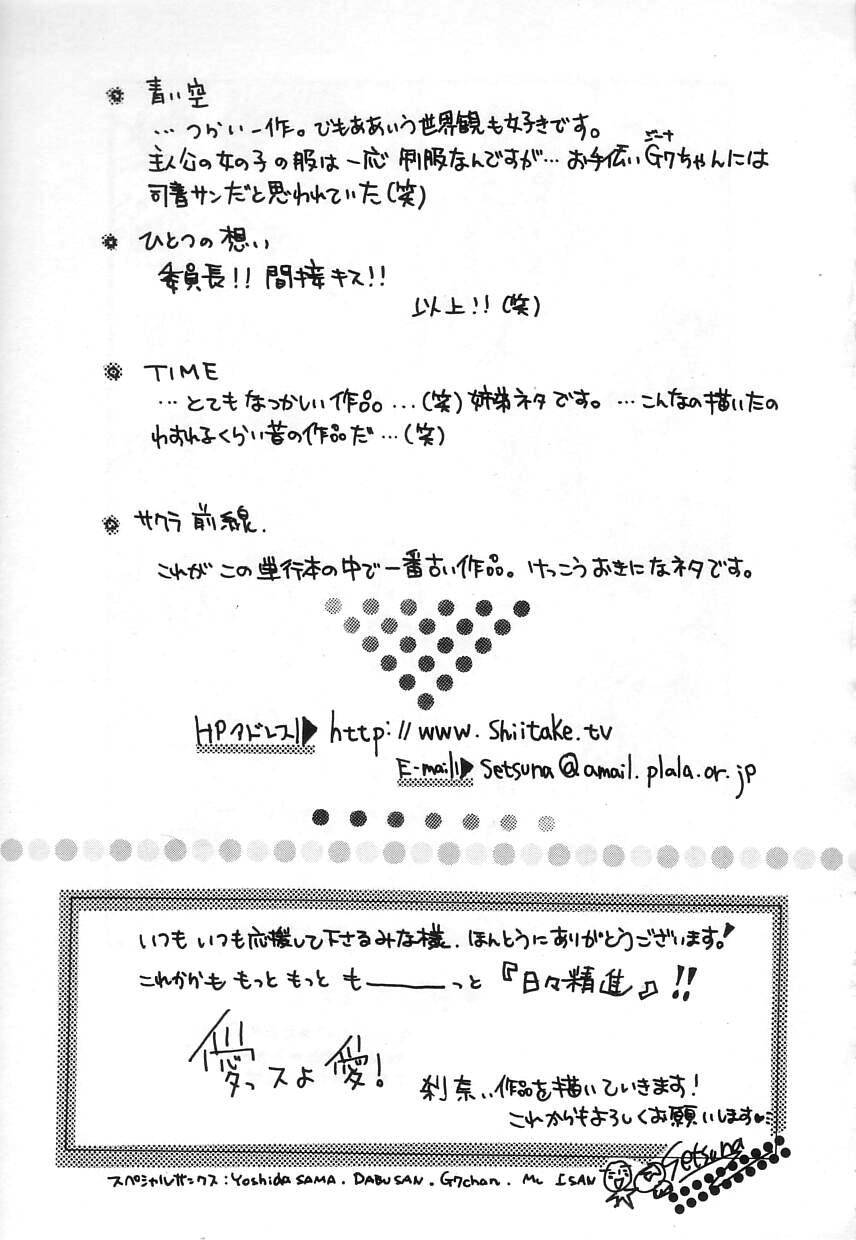 青い空
…つらい一作。でもああいう世界観も好きです。
ジーナ
主人公の女の子の服は一応制服なんですが…お手伝いG7ちゃんには
司書サンだと思われていた(笑)
ひとつの想い
委員長!! 間接キス!!
以上!! (笑)
TIME
…とてもなつかしい作品…(笑) 姉弟ネタです。…こんなの描いたの
わすれるくらい昔の作品だ…(笑)
サクラ前線.
これがこの単行本の中で一番古い作品。けっこうおきになネタです。
HPアドレス http://www.Shiitake.tv
E-mail Setsuna@amail.plala.or.jp
いつもいつも応援して下さるみな様.ほんとうにありがとうございます!
これからも もっと もっと も――っと『日々精進』!!
愛っスよ愛!
刹奈、作品を描いていきます!
これからもよろしくお願いします♥
Setsuna
スペシャルサンクス:Yoshida SAMA. DABUSAN. G7chan. Mc ISAN